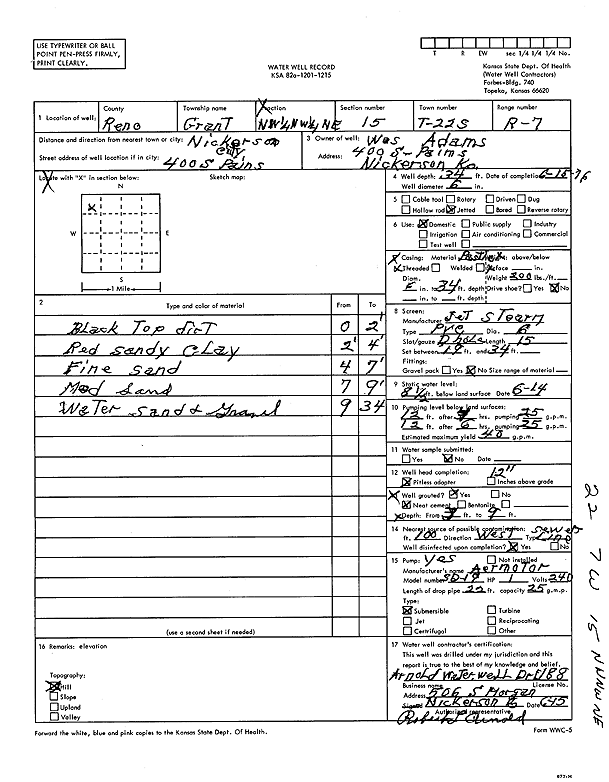 USE TYPEWRITER OR BALL
POINT PEN-PRESS FIRMLY,
PRINT CLEARLY.
WATER WELL RECORD
KSA 82a-1201-1215
T R EW sec 1/4 1/4 1/4 No.
Kansas State Dept. Of Health
(Water Well Contractors)
Forbes-Bldg. 740
Topeka, Kansas 66620
1 Location of well: County Reno Township name Grant Fraction NW¼ NW¼ NE Section number 15 Town number T-22S Range number R-7
Distance and direction from nearest town or city: Nickerson City
Street address of well location if in city: 400 S Pains
3 Owner of well: Wes Adams
Address: 400 S-Pains
Nickerson
Locate with "X" in section below: Sketch map:
N
X
W E
S
1 Mile
4 Well depth: 34 ft. Date of completion 6-15-76
Well diameter 6 in.
5 Cable tool Rotary Driven Dug
Hollow rod X Jetted Bored Reverse rotary
6 Use: X Domestic Public supply Industry
Irrigation Air conditioning Commercial
Test well
Casing: Material Height: above/below
Threaded Welded Surface in.
Diam. Weight 200 lbs./ft.
in. to 34 ft. depth Drive shoe? Yes X No
in. to ft. depth
2 Type and color of material From To
Black Top dirt 0 2'
Red Sandy Clay 2' 4'
Fine sand 4 7'
Med Sand 7 9'
Water sand & Gravel 9 34
(use a second sheet if needed)
8 Screen:
Manufacturer Jet Stearn
Type PVC Dia. 6
Slot/gauze D hole Length 15
Set between 19 ft. and 34 ft.
Fittings:
Gravel pack Yes X No Size range of material
9 Static water level:
8 1/2 ft. below land surface Date 6-14
10 Pumping level below land surfaces:
12 ft. after hrs. pumping 25 g.p.m.
12 ft. after 6 hrs. pumping 25 g.p.m.
Estimated maximum yield 40 g.p.m.
11 Water sample submitted:
Yes X No Date
12 Well head completion: 12"
X Pitless adapter Inches above grade
Well grouted? X Yes No
X Neat cement Bentonite
Depth: From ft. to 9 ft.
14 Nearest source of possible contamination: sewer
ft. 100 Direction West Type Line
Well disinfected upon completion? X Yes No
15 Pump: Yes Not installed
Manufacturer's name Aermotor
Model number SD-19 HP 1 Volts 240
Length of drop pipe 22 ft. capacity 25 g.m.p.
Type:
X Submersible Turbine
Jet Reciprocating
Centrifugal Other
16 Remarks: elevation
Topography:
X Hill
Slope
Upland
Valley
17 Water well contractor's certification:
This well was drilled under my jurisdiction and this
report is true to the best of my knowledge and belief.
Arnold Water well Dr 188
Business name License No.
Address 506 S Morgan
Signed Nickerson Date 6-15
Authorized representative
Robert Arnold
Forward the white, blue and pink copies to the Kansas State Dept. Of Health.
Form WWC-5
22 7W 15 NWNWNE